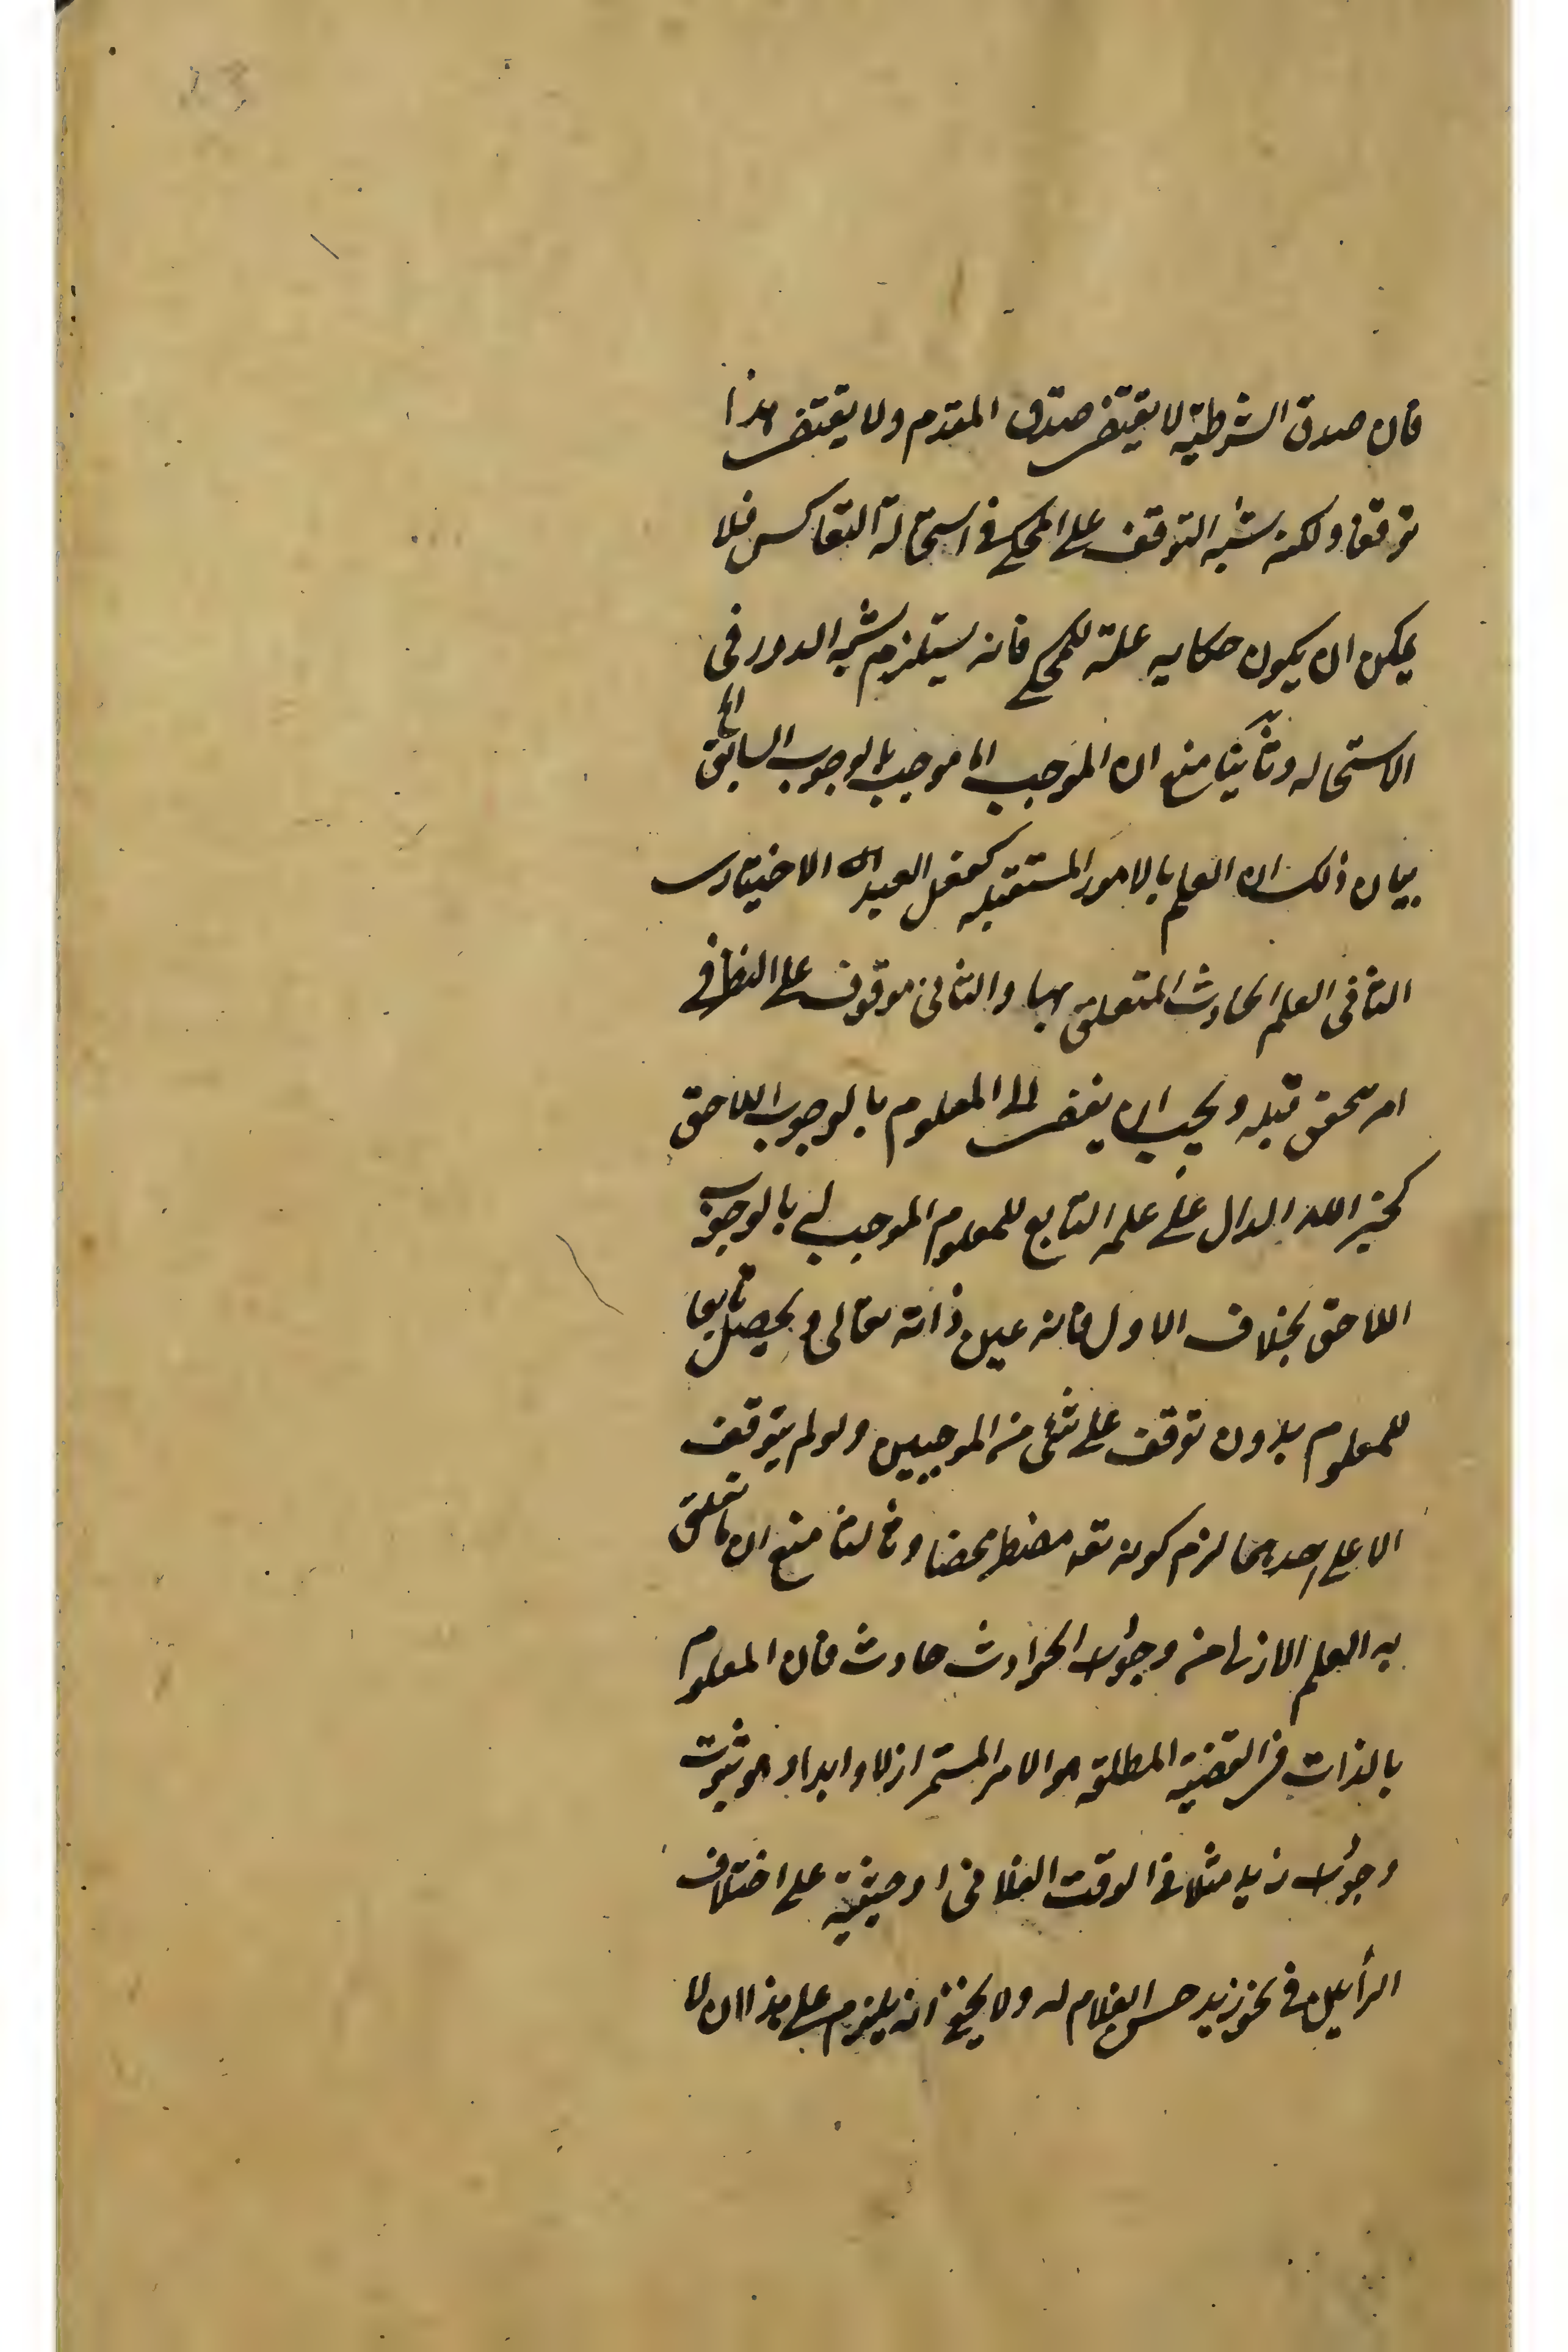 فان صدق الشرطية لا يقتضى صدق المقدم ولا يقتضى هذا
توقفا ولكنه شبه التوقف على المحكى فى استحالة التعاكس فلا
يمكن ان يكون حكايه علة للمحكى فانه يستلزم شبه الدور فى
الاستحاله وثانيا منع ان الموجب اى موجب بالوجوب السابق
بيان ذلك ان العلم بالامور المستقبله كفعل العبد الاختيارى
الثانى العلم الحادث المتعلق بها والثانى موقوف على النظر فى
امر تحقق قبله ويجب ان يفضى الى المعلوم بالوجوب اللاحق
كخبر الله الدال على علمه التابع للمعلوم الموجب له بالوجوب
اللاحق بخلاف الاول فانه عين ذاته تعالى ويحصل تابعا
للمعلوم بدون توقف على شئ من الموجبين ولو لم يتوقف
الا على احدهما لزم كونه تعه مضطرا محضا وثالثا منع ان ما تعلق
به العلم الازلى من وجود الحوادث حادث فان المعلوم
بالذات فى القضية المطلقه هو الامر المستمر ازلا وابدا وهو ثبوت
وجود زيد مثلا فى الوقت الفلانى او حيثية على اختلاف
الرأيين فى نحو زيد حسن الغلام له ولا يخفى انه يلزم على هذا ان لا